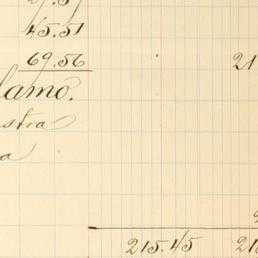 45.51
69.56 21
lamo.
stra
a
215.45 21